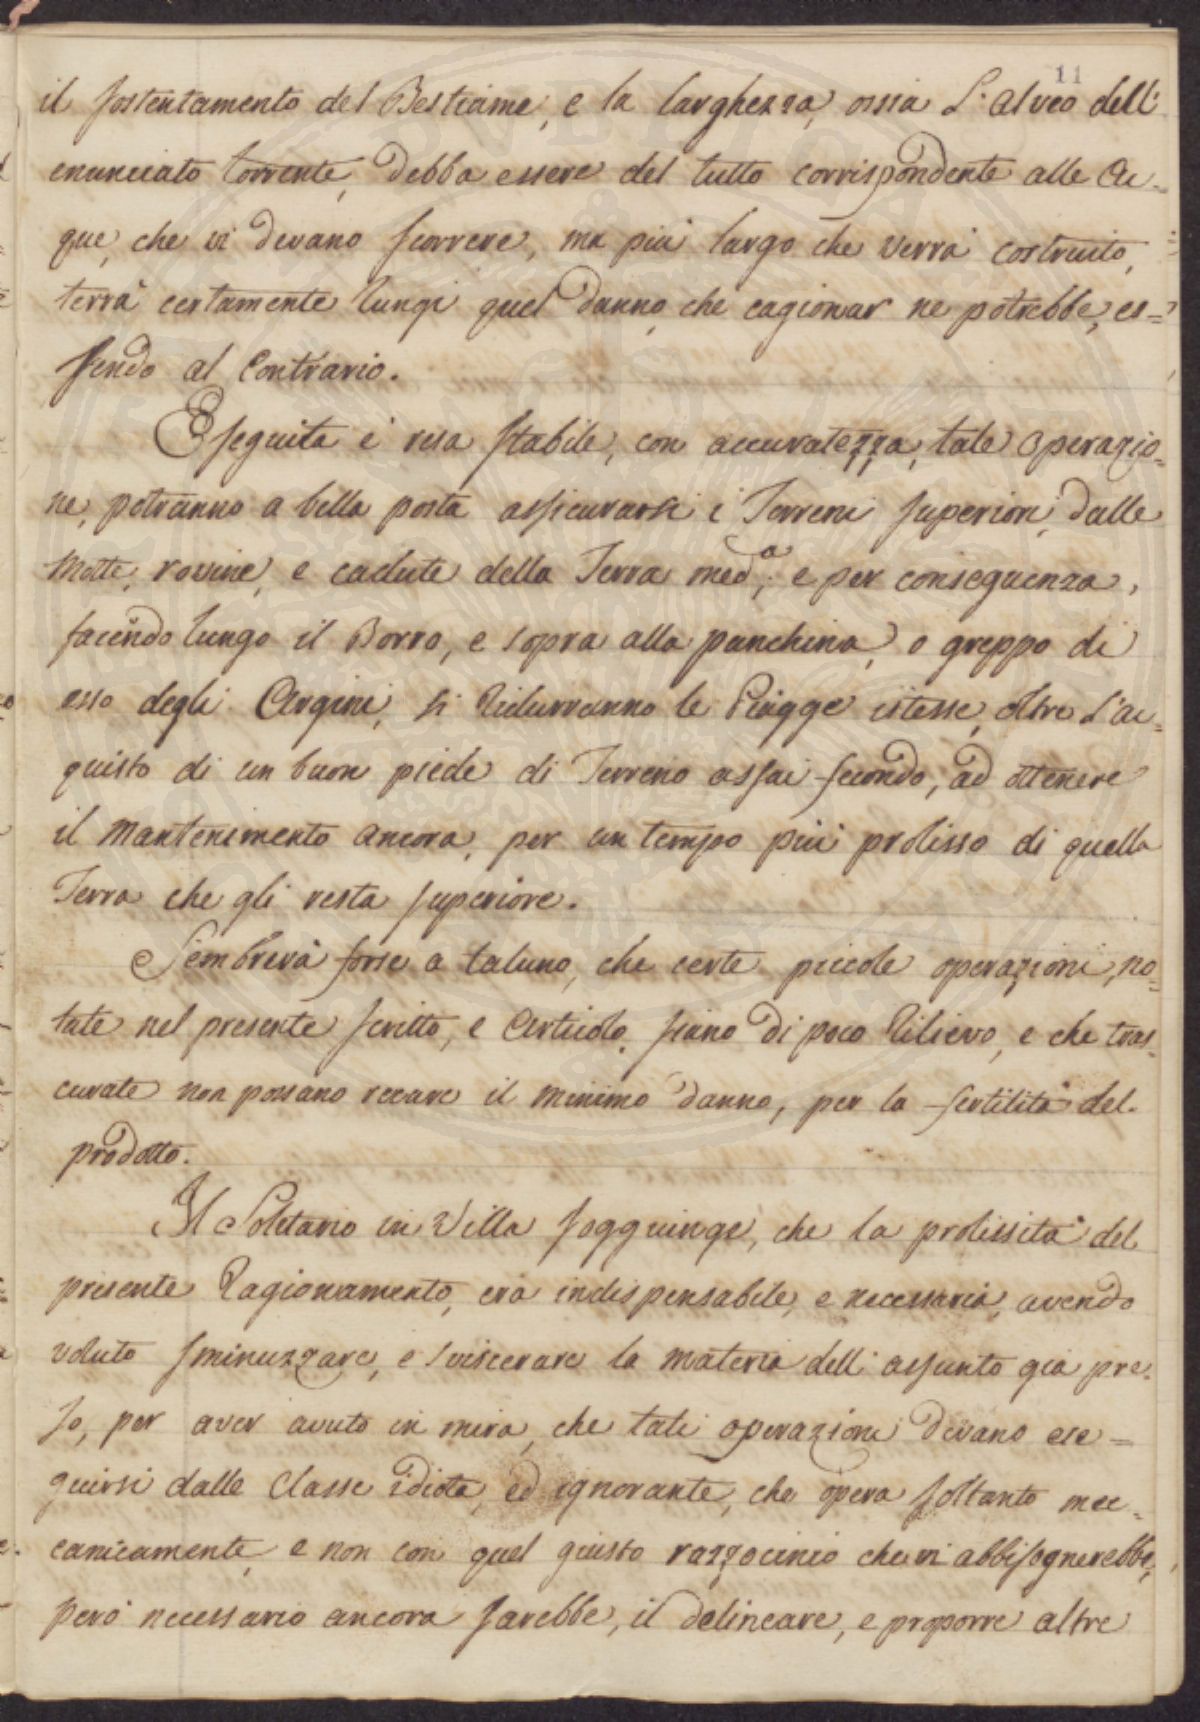 11
il sostentamento del Bestiame, e la larghezza, ossia L'alveo dell'
enunciato torrente, debba essere del tutto corrispondente alle ac-
que, che vi devano scorrere, ma più largo che verrà costruito,
terrà certamente lungi quel danno, che cagionar ne potrebbe, es=
sendo al Contrario.
Eseguita e resa stabile, con accuratezza, tale operazio=
ne, potranno a bella posta assicurarsi i Terreni superiori, dalle
Motte, rovine, e cadute della Terra med.a; e per conseguenza,
facendo lungo il Borro, e sopra alla panchina, o greppo di
esso degli Argini, si ridurranno le Piagge istesse, oltre L'ac=
quisto di un buon piede di Terreno assai fecondo, ad ottenere
il mantenimento ancora, per un tempo più prolisso di quella
Terra che gli resta superiore.
Sembrerà forse a taluno, che certe piccole operazioni, no=
tate nel presente scritto, e Articolo, siano di poco rilievo, e che tras=
curate non possano recare il minimo danno, per la fertilità del
prodotto.
Il Solitario in Villa soggiunge, che la prolissità del
presente Ragionamento, era indispensabile, e necessaria, avendo
voluto sminuzzare, e sviscerare la materia dell'assunto già pre=
so, per aver avuto in mira, che tali operazioni devano ese=
guirsi dalle Classe idiota, ed ignorante, che opera soltanto mec=
canicamente, e non con quel giusto razzocinio che vi abbisognerebbe,
però necessario ancora sarebbe, il delineare, e proporre altre